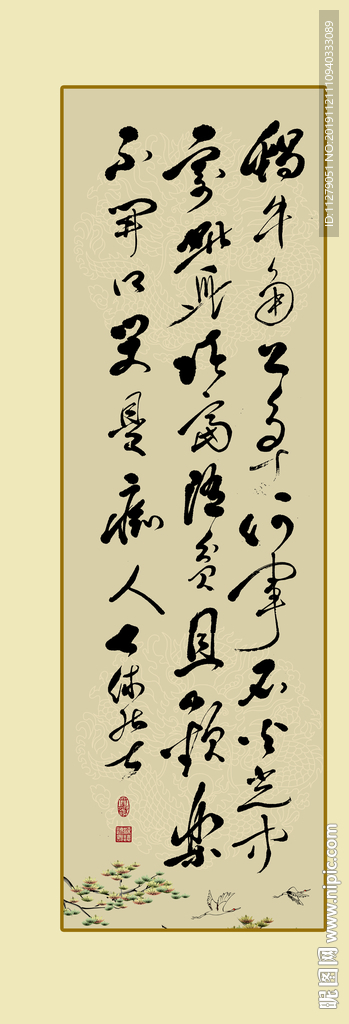 蝸牛角上争何事石火光中
寄此身随富随貧且歡樂
不開口笑是痴人
ID:11279051 NO:20191121110940333089
昵图网 www.nipic.com